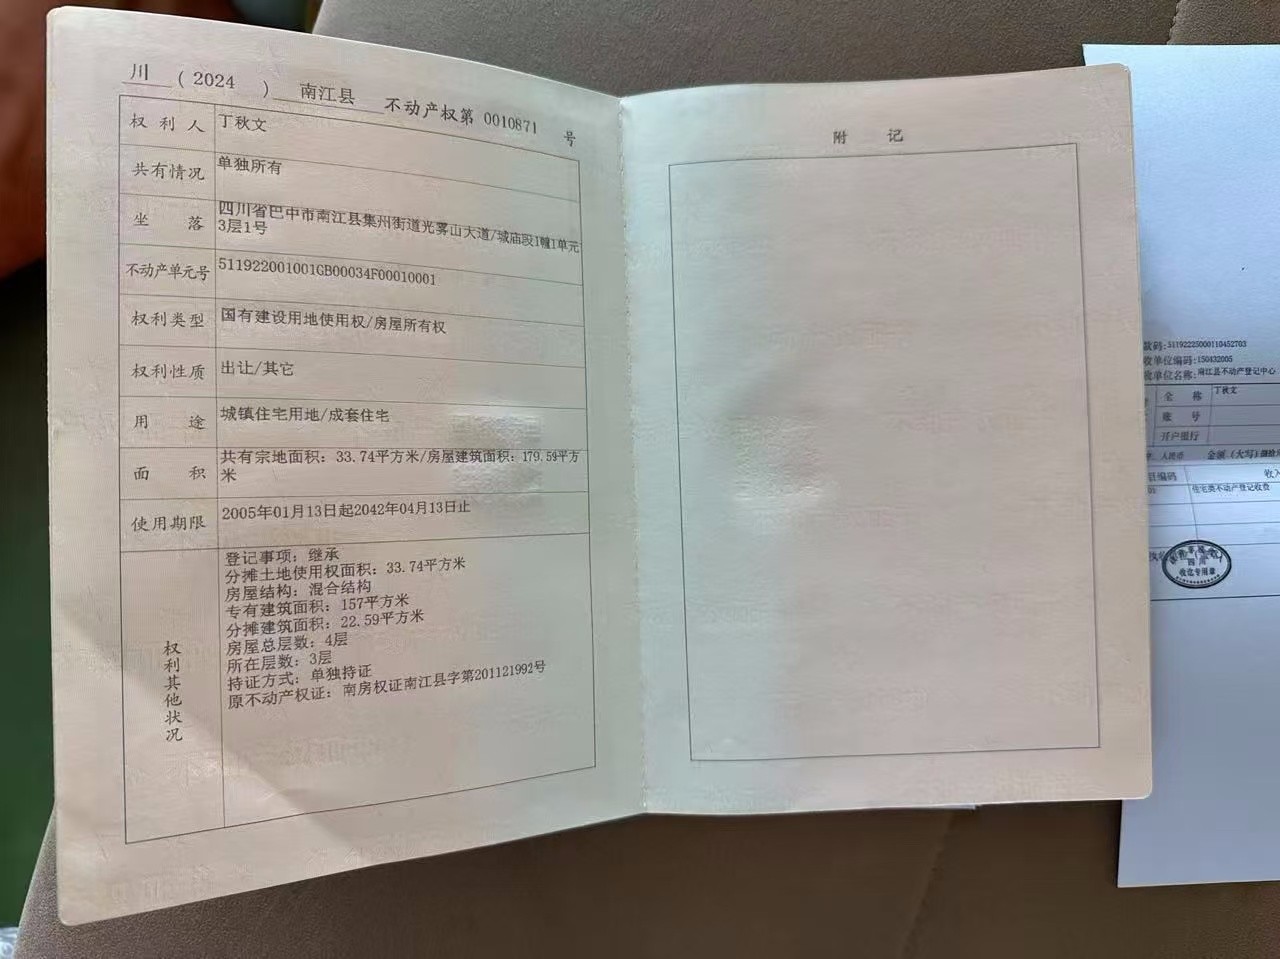 川 ( 2024 ) 南江县 不动产权第 0010871 号
权利人 丁秋文
共有情况 单独所有
坐落 四川省巴中市南江县集州街道光雾山大道/城庙段1幢1单元
3层1号
不动产单元号 511922001001GB00034F00010001
权利类型 国有建设用地使用权/房屋所有权
权利性质 出让/其它
用途 城镇住宅用地/成套住宅
面积 共有宗地面积：33.74平方米/房屋建筑面积：179.59平方
米
使用期限 2005年01月13日起2042年04月13日止
权利其他状况
登记事项：继承
分摊土地使用权面积：33.74平方米
房屋结构：混合结构
专有建筑面积：157平方米
分摊建筑面积：22.59平方米
房屋总层数：4层
所在层数：3层
持证方式：单独持证
原不动产权证：南房权证南江县字第201121992号
附记
款码:51192225000110452703
收单位编码:150432005
收单位名称:南江县不动产登记中心
全称 丁秋文
账号
开户银行
人民币 金额（大写）
目编码 收入
住宅类不动产登记收费
四川
收讫专用章